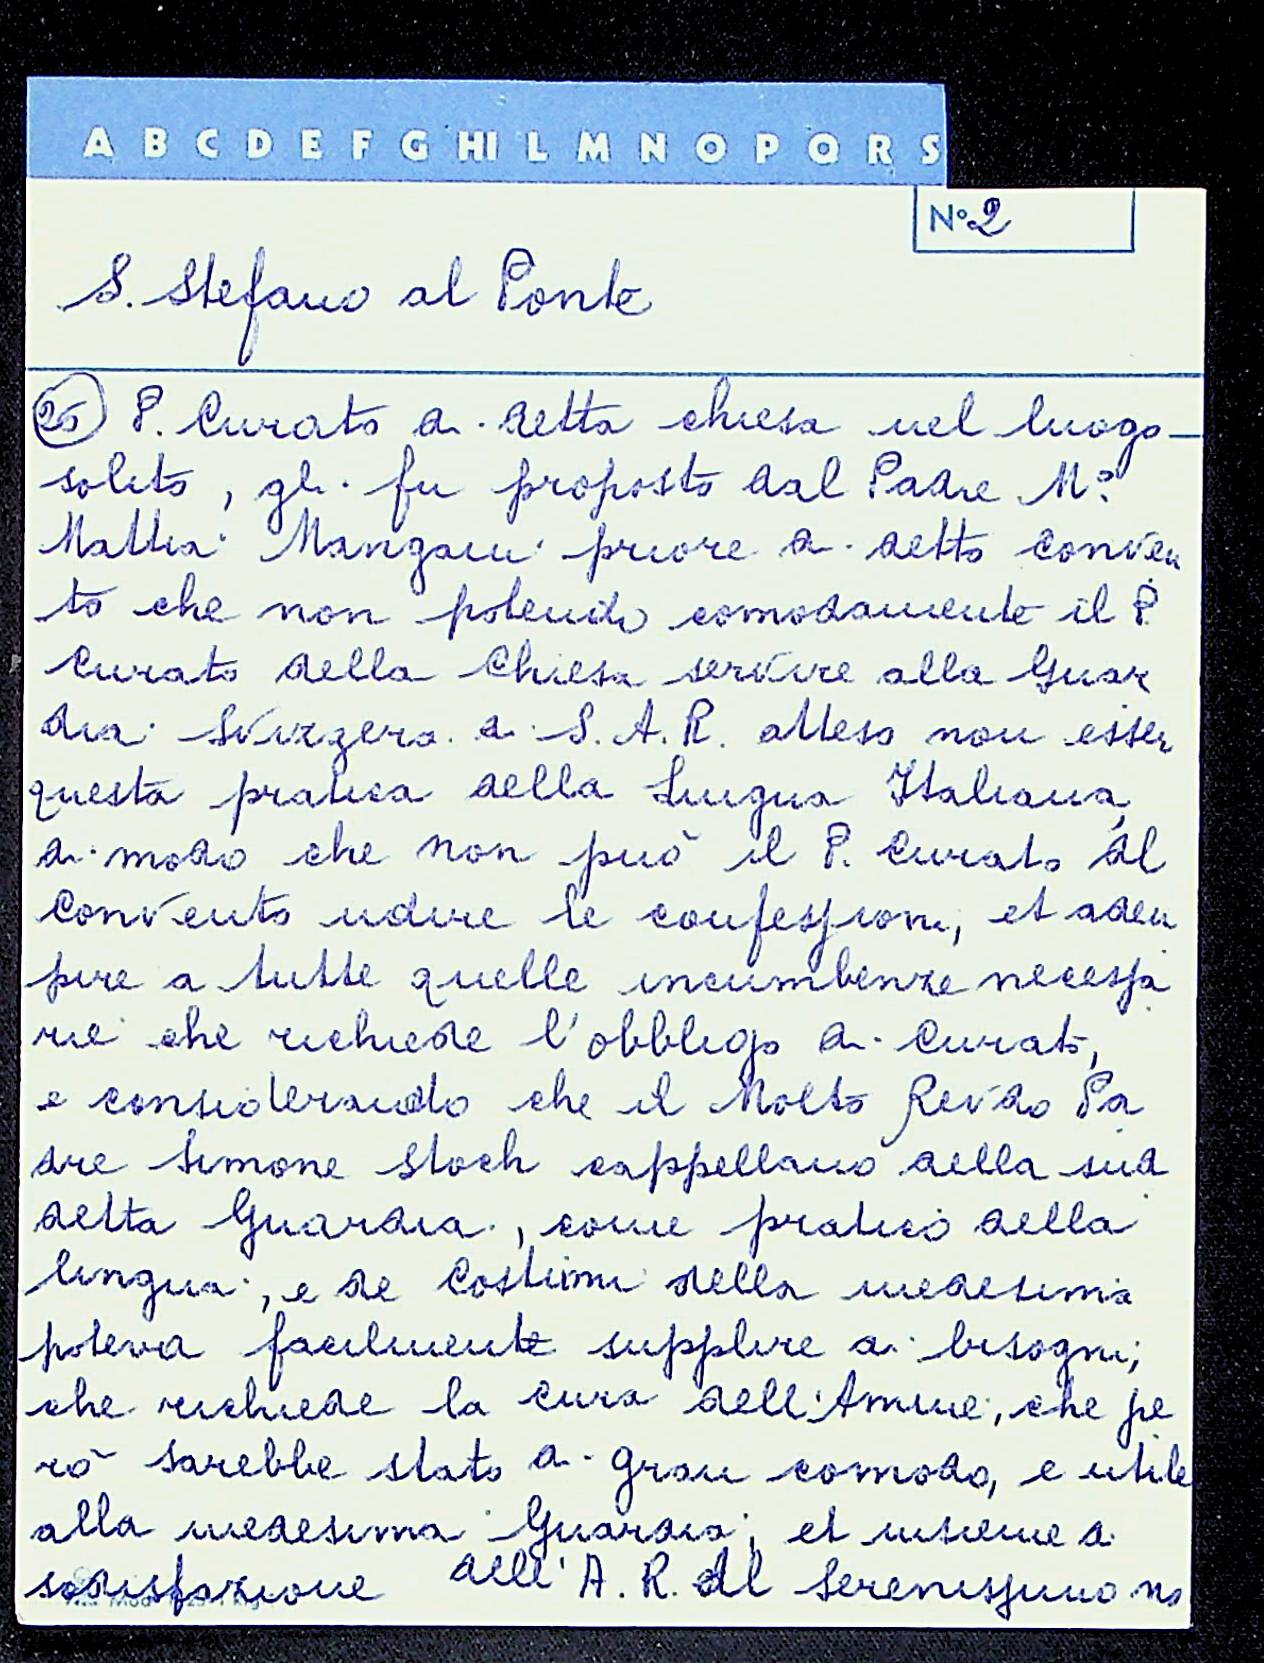 A B C D E F G HI L M N O P Q R S
N° 2
S. Stefano al Ponte
25 P. Curato di detta chiesa nel luogo
solito, gli fu proposto dal Padre M.°
Mattia Mangani priore di detto conven
to che non potendo comodamente il P.
Curato della Chiesa servire alla Guar
dia Svizzera di S. A. R. atteso non esser
questa pratica della Lingua Italiana,
di modo che non può il P. Curato del
Convento udire le confessioni, et adem
pire a tutte quelle incumbenze necessa
rie che richiede l'obbligo di Curato,
e considerando che il Molto Revdo Pa
dre Simone Stoch cappellano della sud
detta Guardia, come pratico della
lingua, e de Costumi della medesima
poteva facilmente supplire ai bisogni,
che richiede la cura dell'Anime, che pe
rò sarebbe stato di gran comodo, e utile
alla medesima Guardia, et insieme di
sodisfazione dell'A. R. del Serenissimo no